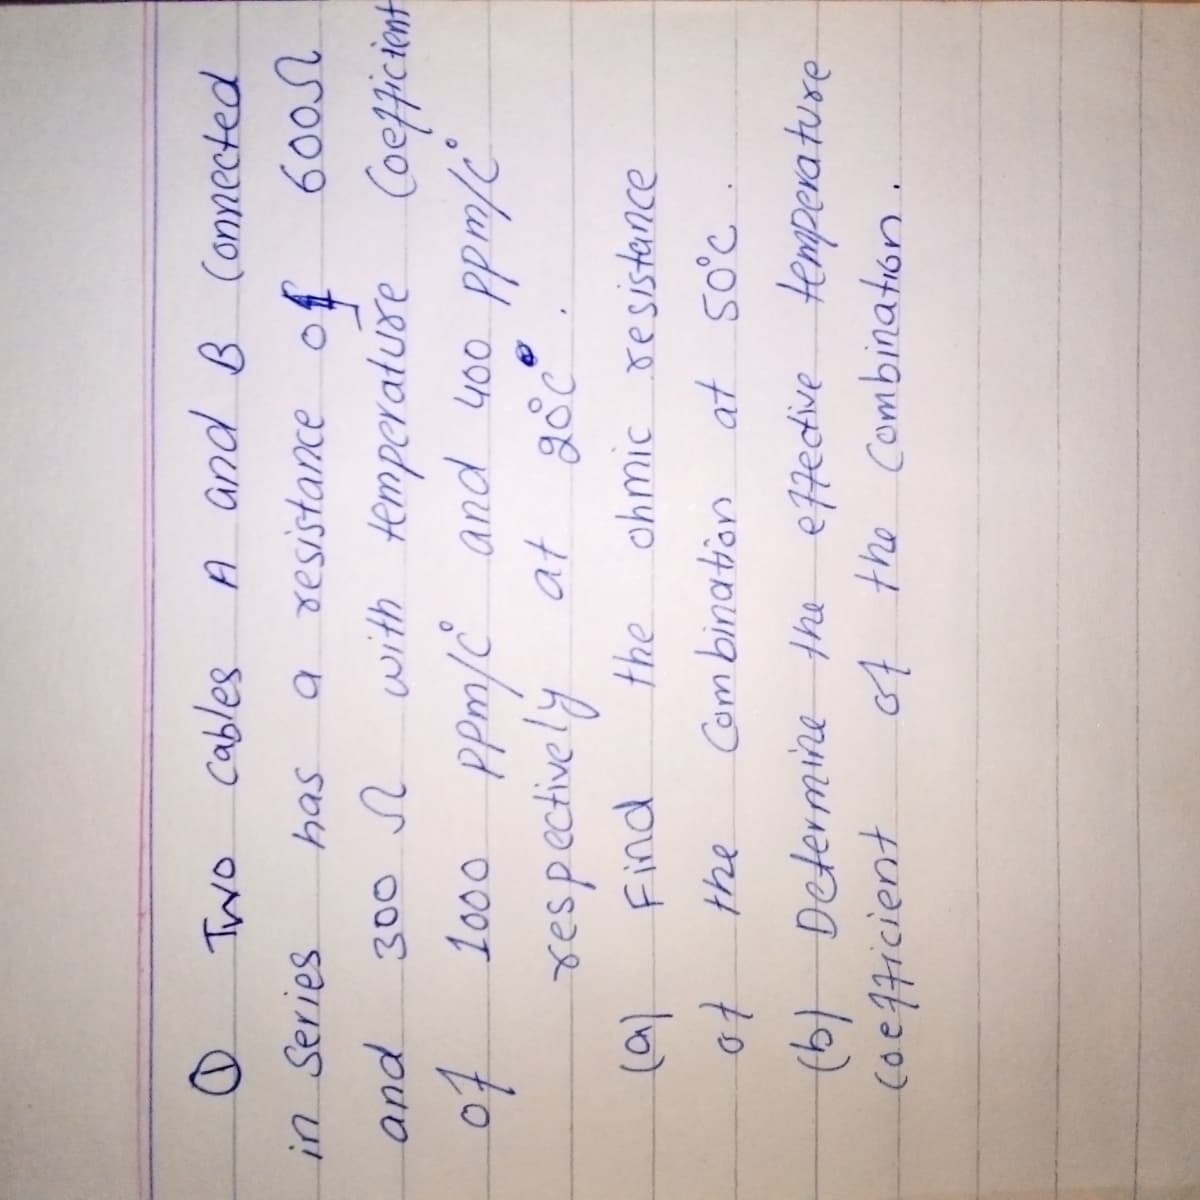 ① Two cables A and B Connected
in Series has a resistance of 600Ω
and 300 Ω with temperature Coefficient
of 1000 ppm/c° and 400 ppm/c°
respectively at 20°c.
(a) Find the ohmic resistance
of the Combination at 50°c.
(b) Determine the effective temperature
Coefficient of the Combination.